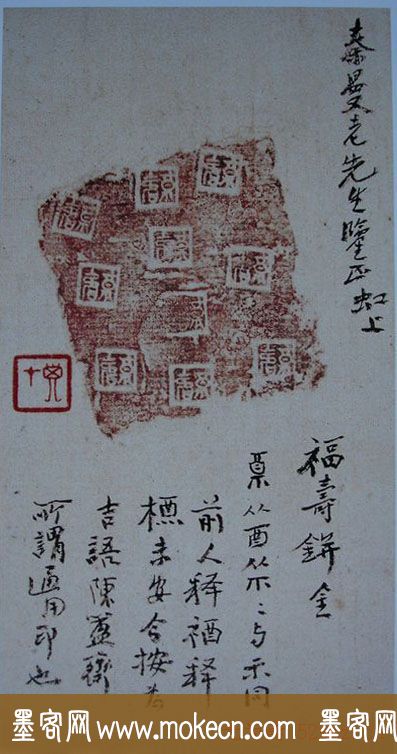 老先生鑒正虹上
福壽鉼金
从酉从 与示同
前人释福释
標未安今按为
吉語陳簠齋
所謂通用印也
墨客网 www.mokecn.com 墨客网